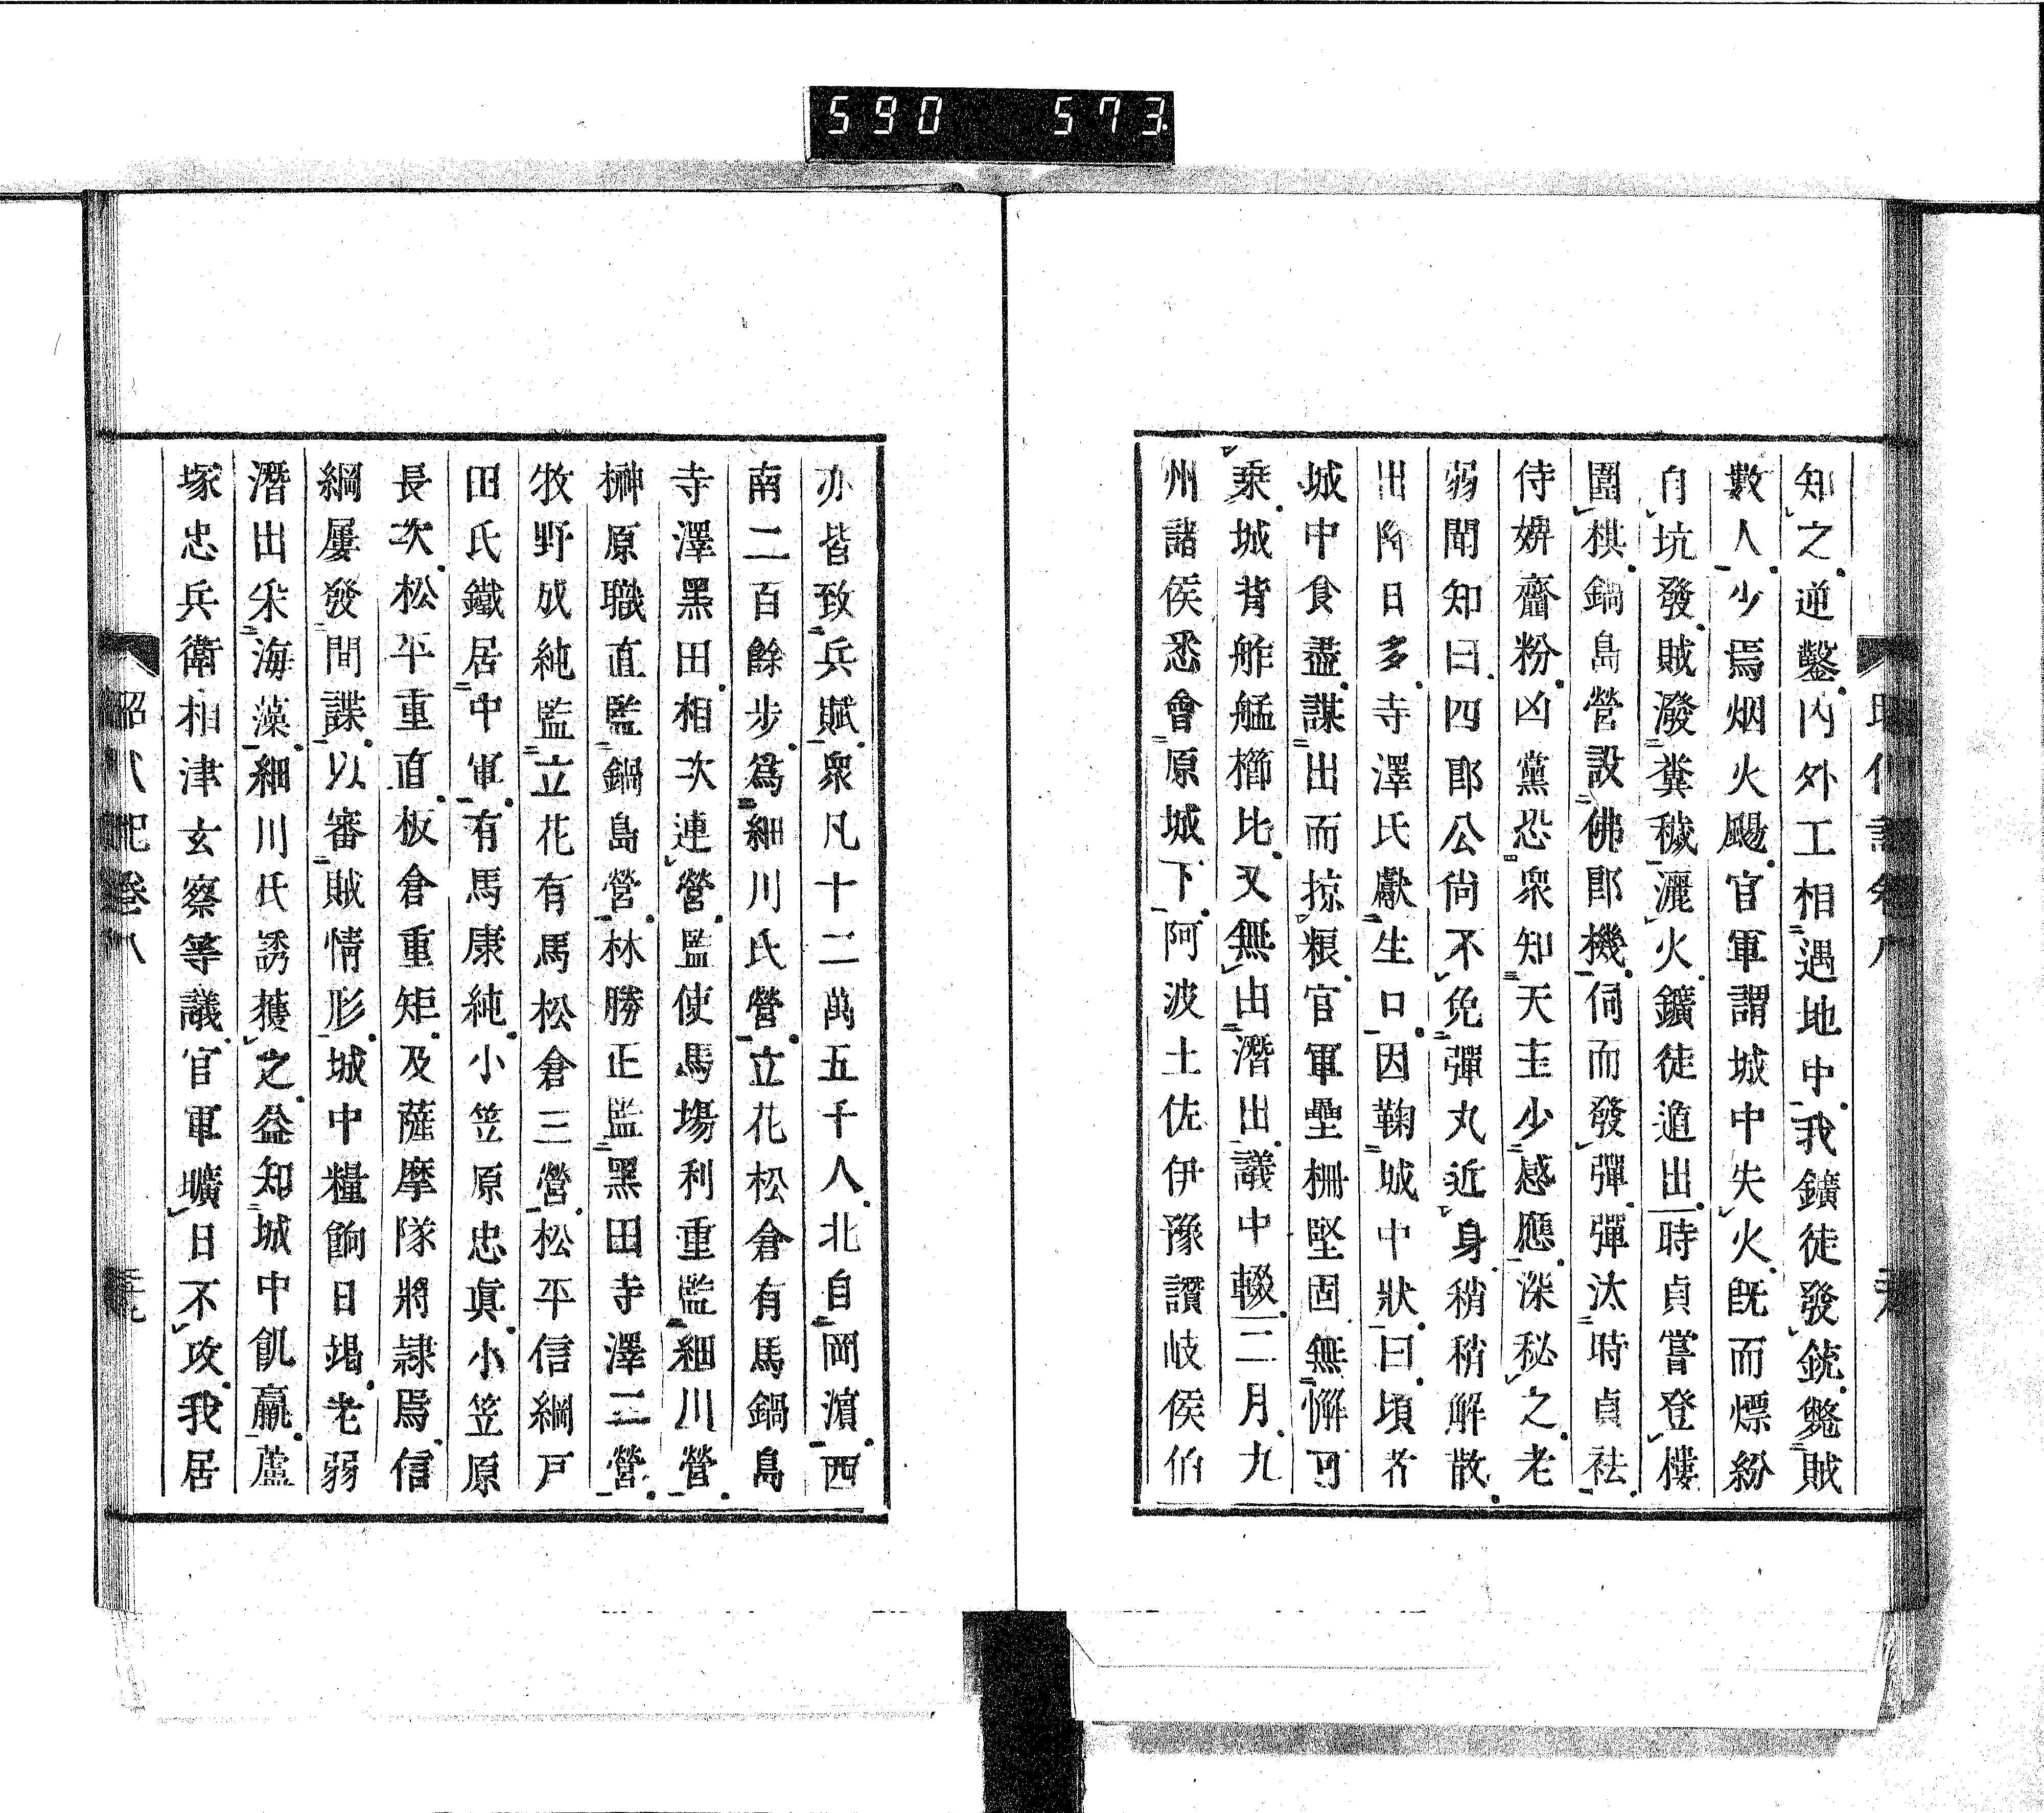 590 573
知之逆鑿内外工相遇地中我鑛徒發銃斃賊
數人少焉烟火颺官軍謂城中失火既而熛紛
自坑發賊潑糞穢灑火鑛徒遁出時貞嘗登樓
圍棋鍋島營設佛郎機伺而發彈彈汰時貞袪
侍婢齏粉凶黨恐衆知天主少感應深秘之老
弱聞知曰四郎公尚不免彈丸近身稍稍解散
出降日多寺澤氏獻生口因鞠城中狀曰頃者
城中食盡謀出而掠粮官軍壘柵堅固無懈可
乘城背舴艋櫛比又無由潛出議中輟二月九
州諸侯悉會原城下阿波土佐伊豫讚岐侯伯
亦皆致兵賦衆凡十二萬五千人北自岡濵西
南二百餘步爲細川氏營立花松倉有馬鍋島
寺澤黑田相次連營監使馬塲利重監細川營
榊原職直監鍋島營林勝正監黑田寺澤二營
牧野成純監立花有馬松倉三營松平信綱戸
田氏鐵居中軍有馬康純小笠原忠眞小笠原
長次松平重直板倉重矩及薩摩隊將隷焉信
綱屢發間諜以審賊情形城中糧餉日竭老弱
潛出采海藻細川氏誘獲之益知城中飢羸蘆
塚忠兵衛相津玄察等議官軍曠日不攻我居
紀卷八